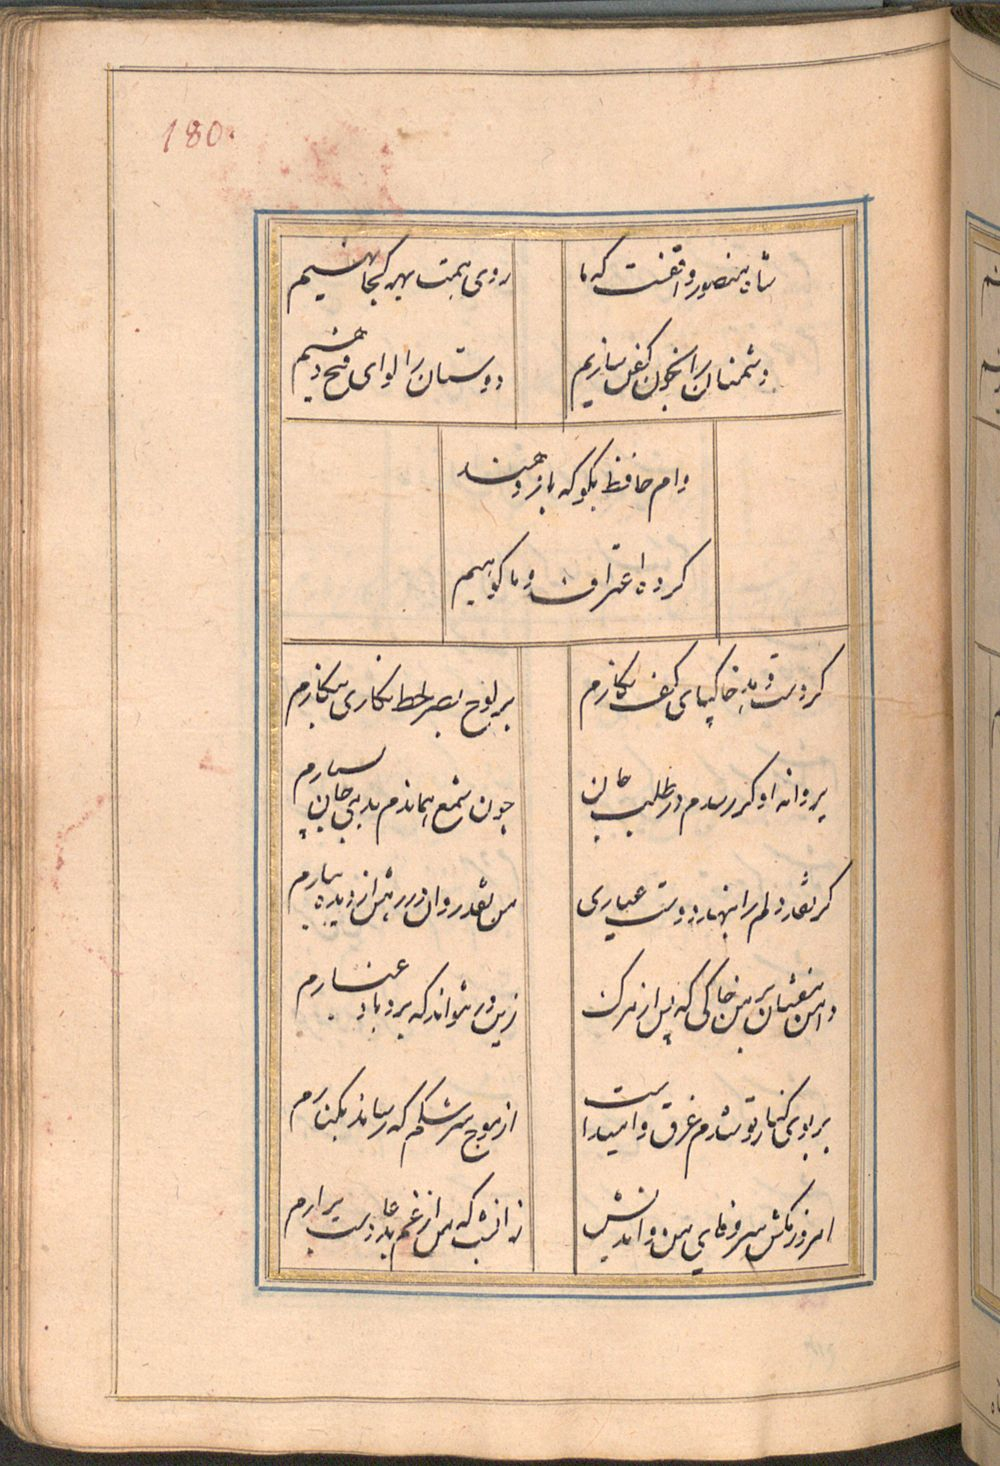 180
شاه منصور واقفست که ما
روی همت بهر کجا نهیم
دشمنان را بخون کفن سازیم
دوستان را لوای فتح دهیم
وام حافظ بکو که باز دهند
کرده اعتراف و ما کوهیم
کر دست دهد خاک کپای نکارم
بر لوح بصر خط نکاری بنکارم
پروانه او کر رسدم در طلب جان
چون شمع هماندم بدمی جان بسپارم
کر نقد دلم را ننهد دوست عیاری
من نقد روان در رهش از دیده ببارم
دامن مفشان بر من خاکی که پس از مرک
زین در نتواند که برد باد غبارم
بر بوی کنار تو شدم غرق و امید است
از موج سرشکم که رساند بکنارم
امروز مکش سر ز وفای من و اندیش
زانشب که من از غم بدعا دست برارم